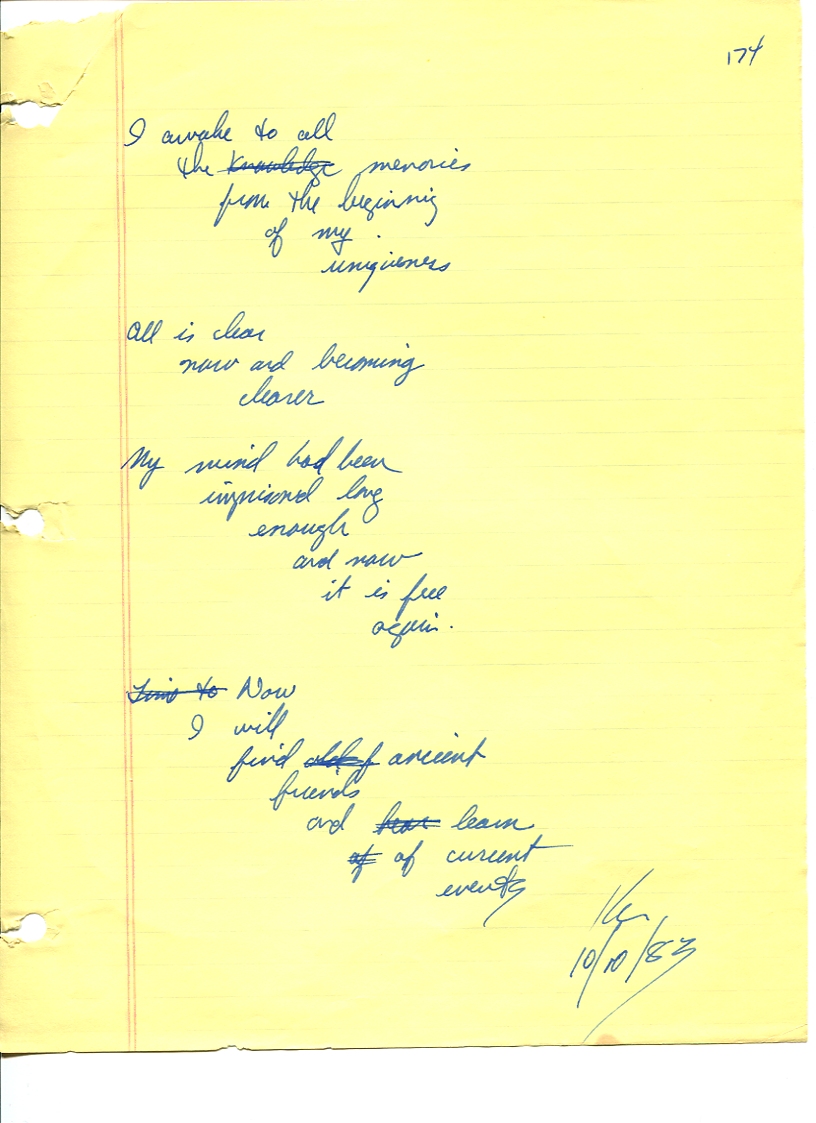 174
I awake to all
the knowledge memories
from the beginning
of my
uniqueness
All is clear
now and becoming
clearer
My mind had been
imprisond long
enough
and now
it is free
again.
Now
I will
find ancient
friends
and hear learn
of of current
events
Ken
10/10/83